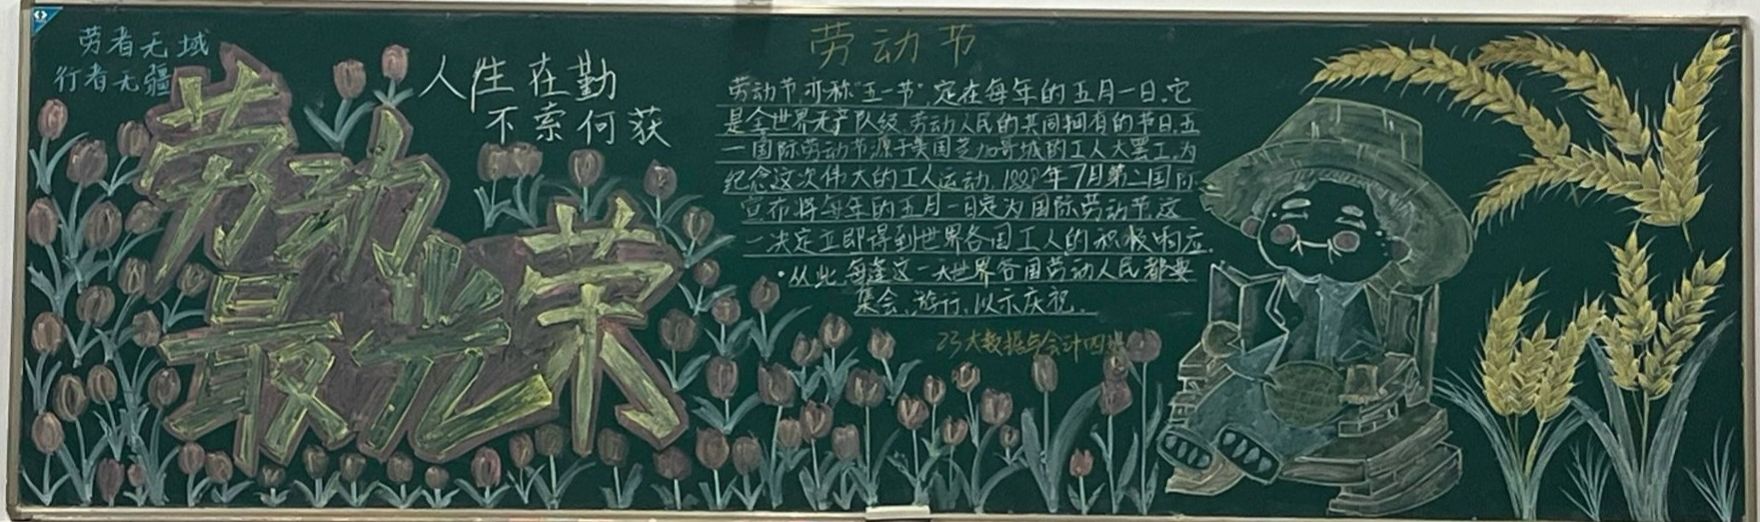 劳者无域
行者无疆
劳动
最光荣
人生在勤
不索何获
劳动节
劳动节,亦称"五一节"定在每年的五月一日.它
是全世界无产队级.劳动人民的共同拥有的节日.五
一国际劳动节源于美国芝加哥城的工人大罢工.为
纪念这次伟大的工人运动.1889年7月第二国际
宣布将每年的五月一日定为国际劳动节.这
一决定立即得到世界各国工人的积极响应.
从此,每逢这一天世界各国劳动人民都要
集会、游行、以示庆祝.
23大数据与会计四班